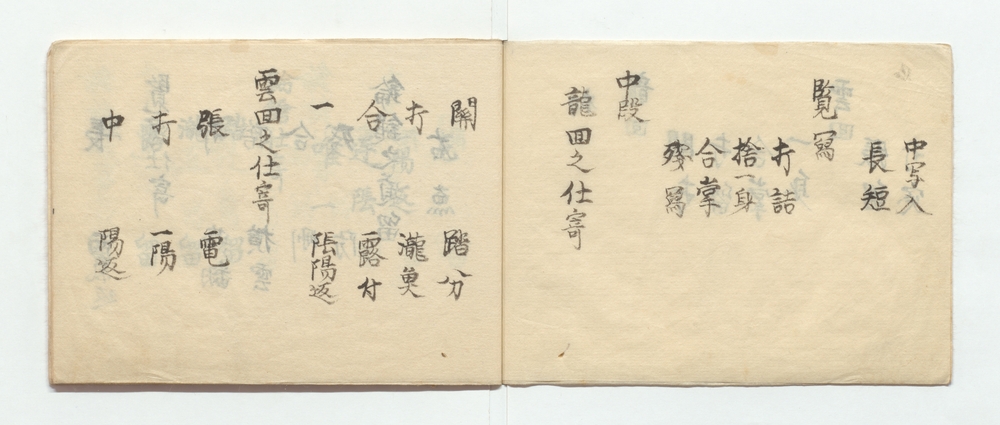 中写入
長短
覧寫
打詰
捨一身
合掌
残寫
中段
龍田之仕寄
開 踏分
打 瀧奥
合 露付
一 張陽返
雲田之仕寄
張 電
打 一陽
中 陽返